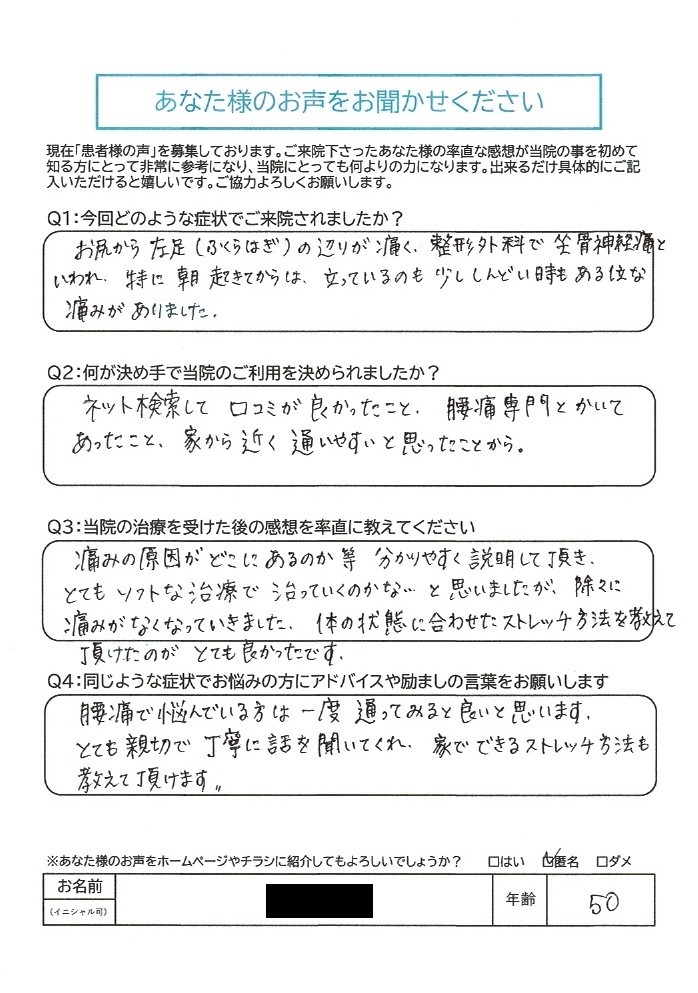 あなた様のお声をお聞かせください
現在「患者様の声」を募集しております。ご来院下さったあなた様の率直な感想が当院の事を初めて
知る方にとって非常に参考になり、当院にとっても何よりの力になります。出来るだけ具体的にご記
入いただけると嬉しいです。ご協力よろしくお願いします。
Q1：今回どのような症状でご来院されましたか？
お尻から 左足（ふくらはぎ）の辺りが痛く、整形外科で 坐骨神経痛と
いわれ、特に朝起きてからは、立っているのも少ししんどい時もある位な
痛みがありました。
Q2：何が決め手で当院のご利用を決められましたか？
ネット検索して 口コミが良かったこと、腰痛専門とかいて
あったこと、家から近く通いやすいと思ったことから。
Q3：当院の治療を受けた後の感想を率直に教えてください
痛みの原因がどこにあるのか等 分かりやすく説明して頂き、
とてもソフトな治療で 治っていくのかな…と思いましたが、除々に
痛みがなくなっていきました。体の状態に合わせたストレッチ方法を教えて
頂けたのが とても良かったです。
Q4：同じような症状でお悩みの方にアドバイスや励ましの言葉をお願いします
腰痛で悩んでいる方は一度通ってみると良いと思います。
とても親切で丁寧に話を聞いてくれ、家でできるストレッチ方法も
教えて頂けます。
※あなた様のお声をホームページやチラシに紹介してもよろしいでしょうか？ □はい ☑匿名 □ダメ
お名前
（イニシャル可）
年齢
50